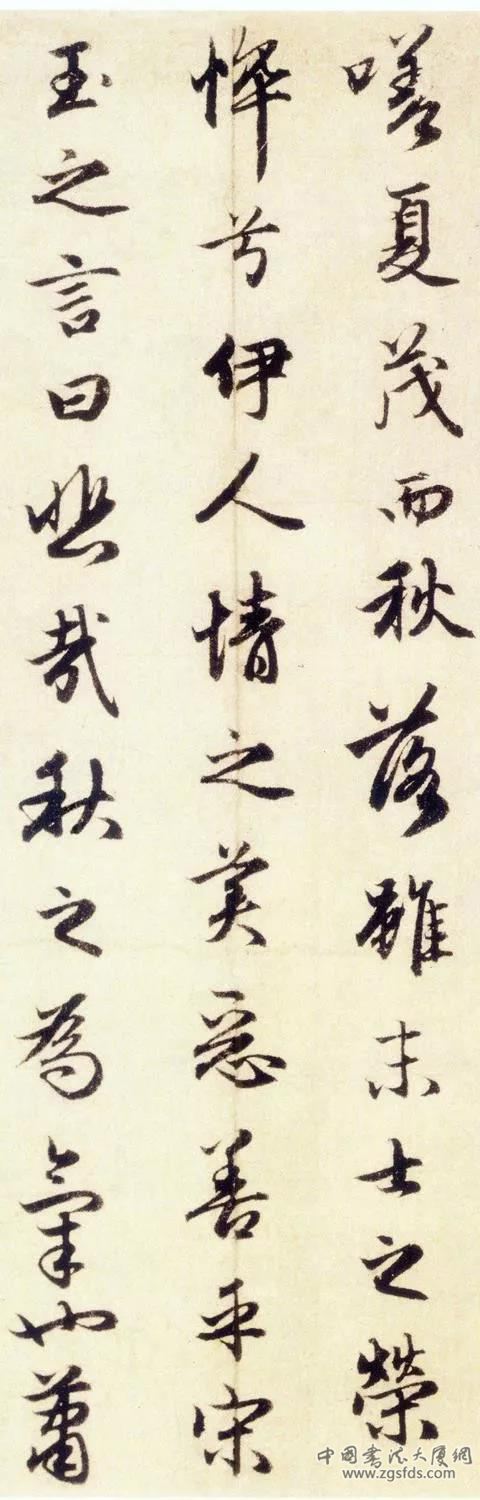 嗟夏茂而秋落雖末士之榮
悴兮伊人情之美惡善乎宋
玉之言曰悲哉秋之為氣也蕭
中國書法大厦網
www.zgsfds.com